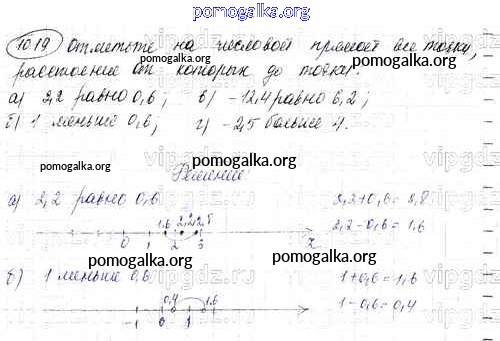 pomogalka.org
10.19 Отметьте на числовой прямой все точки,
расстояние от которых до точки:
а) 2,2 равно 0,6; в) -12,4 равно 6,2;
б) 1 меньше 0,6; г) -2,5 больше 4.
pomogalka.org
pomogalka.org
pomogalka.org
Решение
pomogalka.org
а) 2,2 равно 0,6 2,2+0,6=2,8
1,6 2,2 2,8 2,2-0,6=1,6
0 1 2 3 x
vipgdz.ru
б) 1 меньше 0,6 1+0,6=1,6
0,4 1,6 1-0,6=0,4
-1 0 1
pomogalka.org
pomogalka.org